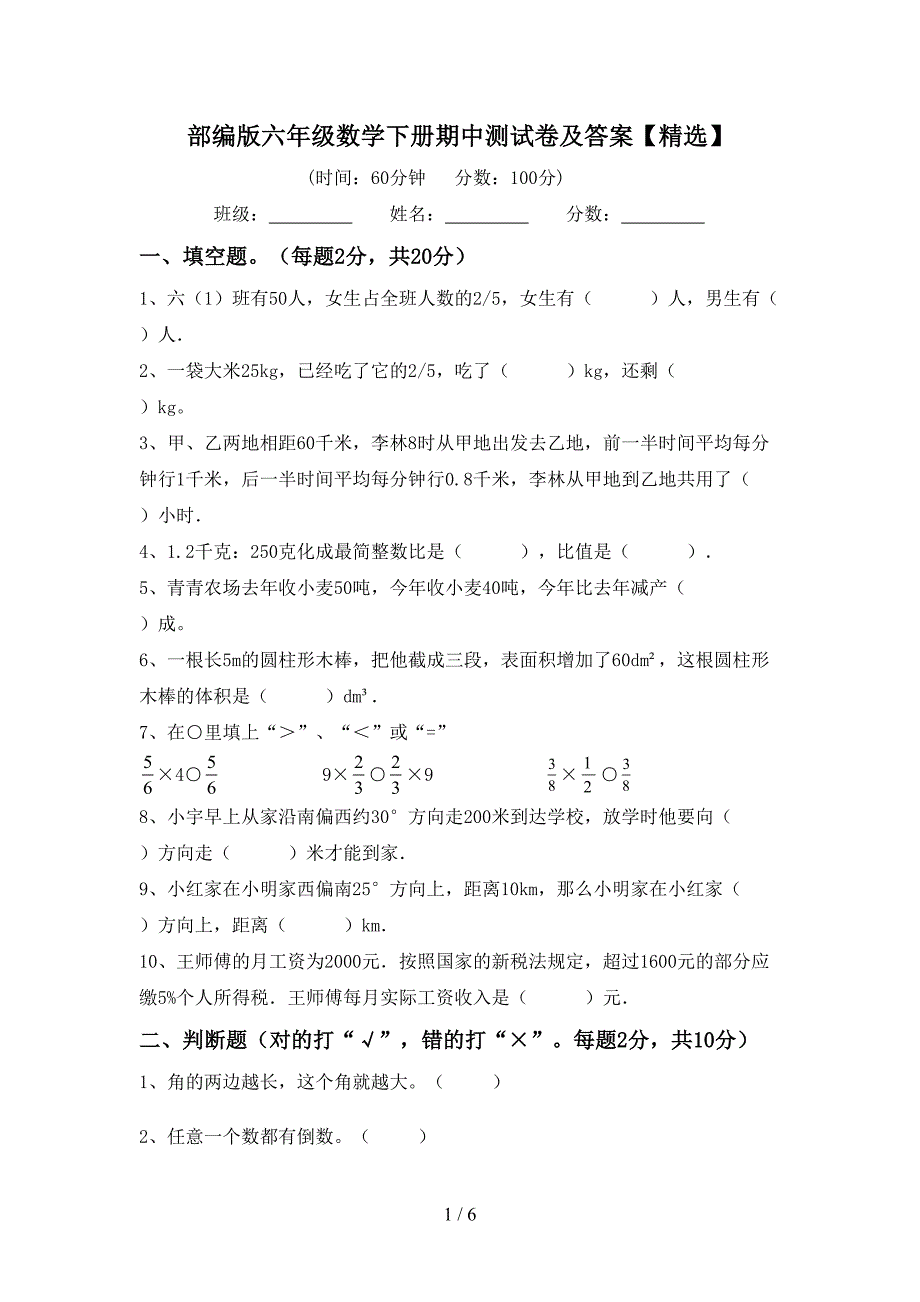 部编版六年级数学下册期中测试卷及答案【精选】
(时间：60分钟   分数：100分)
班级：_________    姓名：_________    分数：_________
一、填空题。（每题2分，共20分）
1、六（1）班有50人，女生占全班人数的2/5，女生有（      ）人，男生有（
）人．
2、一袋大米25kg，已经吃了它的2/5，吃了（      ）kg，还剩（
）kg。
3、甲、乙两地相距60千米，李林8时从甲地出发去乙地，前一半时间平均每分
钟行1千米，后一半时间平均每分钟行0.8千米，李林从甲地到乙地共用了（
）小时．
4、1.2千克：250克化成最简整数比是（      ），比值是（      ）．
5、青青农场去年收小麦50吨，今年收小麦40吨，今年比去年减产（
）成。
6、一根长5m的圆柱形木棒，把他截成三段，表面积增加了60dm²，这根圆柱形
木棒的体积是（      ）dm³．
7、在○里填上“＞”、“＜”或“=”
5/6×4○5/6    9×2/3○2/3×9    3/8×1/2○3/8
8、小宇早上从家沿南偏西约30°方向走200米到达学校，放学时他要向（
）方向走（      ）米才能到家．
9、小红家在小明家西偏南25°方向上，距离10km，那么小明家在小红家（
）方向上，距离（      ）km．
10、王师傅的月工资为2000元．按照国家的新税法规定，超过1600元的部分应
缴5%个人所得税．王师傅每月实际工资收入是（      ）元．
二、判断题（对的打“√”，错的打“×”。每题2分，共10分）
1、角的两边越长，这个角就越大。（     ）
2、任意一个数都有倒数。（     ）
1 / 6